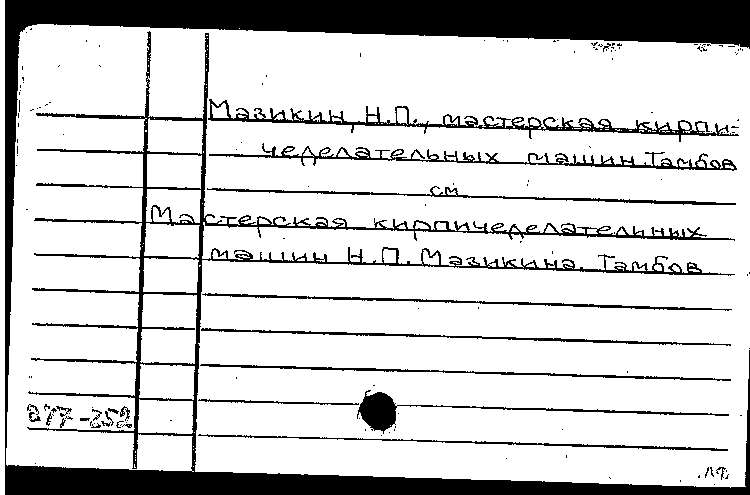 Мазикин, Н.П., мастерская кирпи-
чеделательных машин. Тамбов
см
Мастерская кирпичеделательных
машин Н.П. Мазикина. Тамбов
277-252